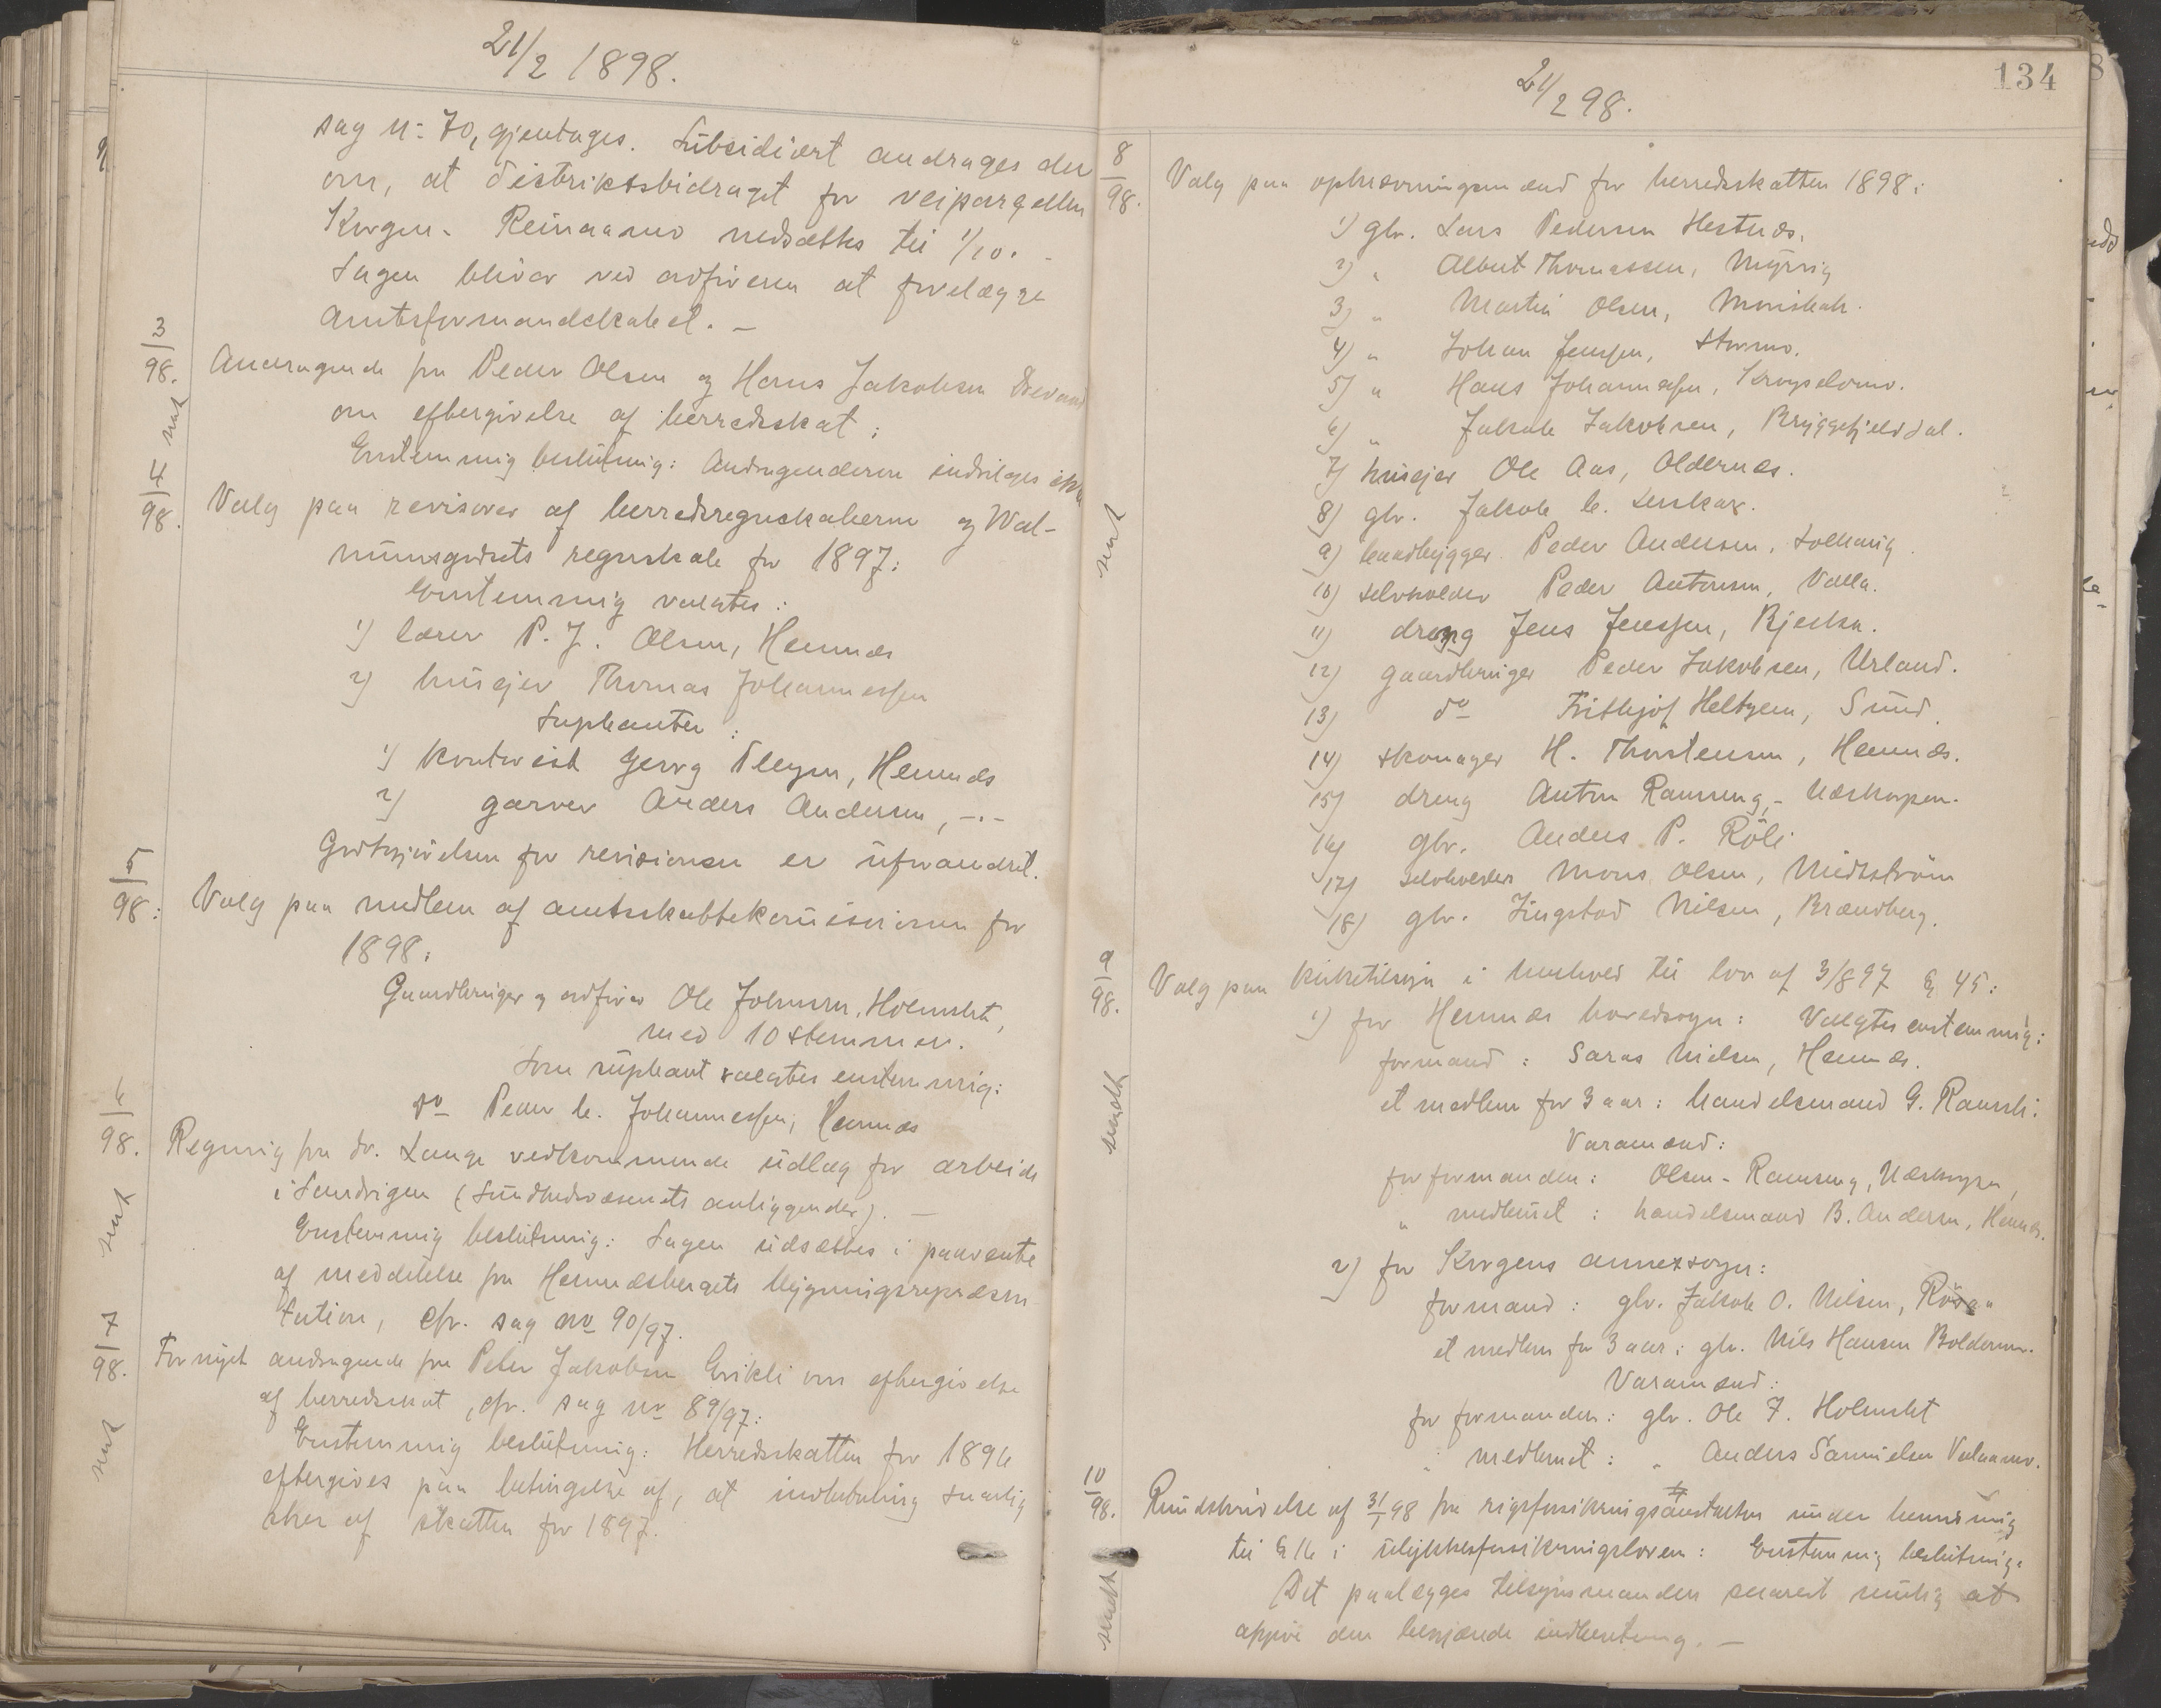 21/2 1898.
sag No 70, gjentages. Subsidiært andrages der
om, at distriktsbidraget for veiparcellen
Korgen - Reinaamo nedsættes til 1/10. -
Sagen bliver ved ordføreren at forelægge
Amtsformandskabet. -
3/98.
Andragende fra Peder Olsen og Hans Jakobsen
om eftergivelse af herredsskat:
sent
Enstemmig beslutning: Andragenderne indvilges ikke
4/98.
Valg paa revisorer af herredsregnskaberne og Wal-
numsgodsets regnskab for 1897:
Enstemmig valgtes:
1) lærer P. J. Olsen, Hemnæs
2) husejer Thomas Johannessen
Suppleanter:
1) kontorist Georg Pleym, Hemnæs
2) garver Anders Andersen, -.-
Godtgjørelsen for revisionen er uforandret.
5/98:
Valg paa medlem af amtsskattekommissionen for
1898:
Gaardbruger og ordfører Ole Johnsen, Holmslet,
med 10 stemmer.
Som supleant valgtes enstemmig:
do Peder C. Johannessen, Hemnæs
6/98.
Regning fra dr. Lange vedkommende udlæg for arbeide
i Sundvigen (Sundhedsvæsenets anliggender). -
sent
Enstemmig beslutning: Sagen udsættes i paavente
af meddelelse fra Hemnæsbergets bygningsrepræsen-
tation, cfr. sag No 90/97.
7/98.
Fornyet andragende fra Peter Jakobsen Grikli om eftergivelse
af herredsskat, cfr. sag No 89/97:
sent
Enstemmig beslutning: Herredsskatten for 1896
eftergives paa betingelse af, at indbetaling snarlig
sker af skatten for 1897.
134
21/2 98.
8/98.
Valg paa opkrævningsmænd for herredsskatten 1898:
1) gbr. Lars Pedersen Hestnæs.
2) " Albert Thomassen, Myrvig
3) " Martin Olsen,
4) " Johan Jenssen, Stormo.
5) " Hans Johannessen,
6) " Jakob Jakobsen, Bryggefjelddal.
7) husejer Ole Aas, Aldernæs.
8) gbr. Jakob C. Leirskar.
sent
9) landbygger Peder Andersen,
10) selvholder Peder Antonsen, Valla.
11) dreng Jens Jenssen, Bjerka.
12) gaardbruger Peder Jakobsen, Urland.
13) do Frithjof Heltzen, Sund.
14) skomager H. Thorstensen, Hemnæs.
15) dreng Anton Ranseng, Næskorgen.
16) gbr. Anders P. Röli
17) selvholder Mons Olsen, Midtström
18) gbr. Lingstad Nilsen, Brændberg.
9/98.
Valg paa kirketilsyn i henhold til lov af 3/8 97 § 45:
1) for Hemnæs hovedsogn: Valgtes enstemmig:
formand: Saras Nielsen, Hemnæs.
et medlem for 3 aar: handelsmand G. Ransli.
sendt
Varamænd:
for formanden: Olsen-Ranseng, Næskorgen,
" medlemet: handelsmand B. Andersen, Hemnæs.
2) for Korgens annexsogn:
formand: gbr. Jakob O. Nilsen, Rösaa
et medlem for 3 aar: gbr. Nils Hansen Boldermo.
Varamænd:
for formanden: gbr. Ole J. Holmslet
" medlemet: " Anders Samuelsen
10/98.
Rundskrivelse af 31/1 98 fra rigsforsikringsanstalten under henvisning
til § 16 i ulykkesforsikringsloven: Enstemmig beslutning:
sendt
Det paalægges tilsynsmanden snarest mulig at
afgive den begjærede indberetning. -